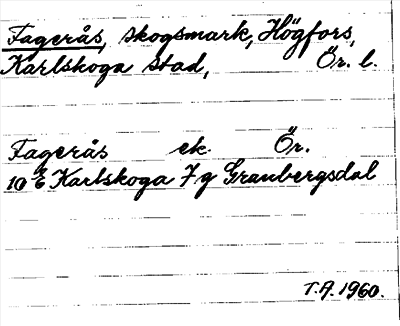 Fagerås, skogsmark, Högfors,
Karlskoga stad, Ör. l.
Fagerås ek. Ör.
10 E Karlskoga 7 g Granbergsdal
T.A. 1960.